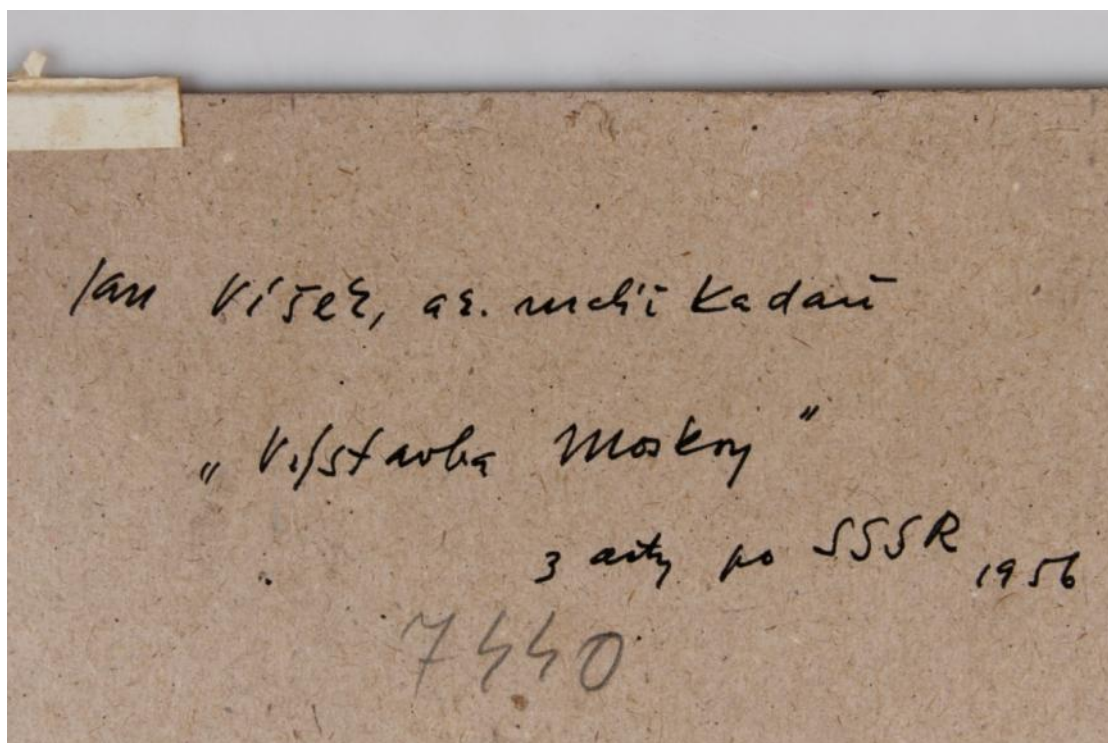 Jan Víšek, ak. malíř Kadaň
„Výstavba Moskvy"
po SSSR 1956
7440